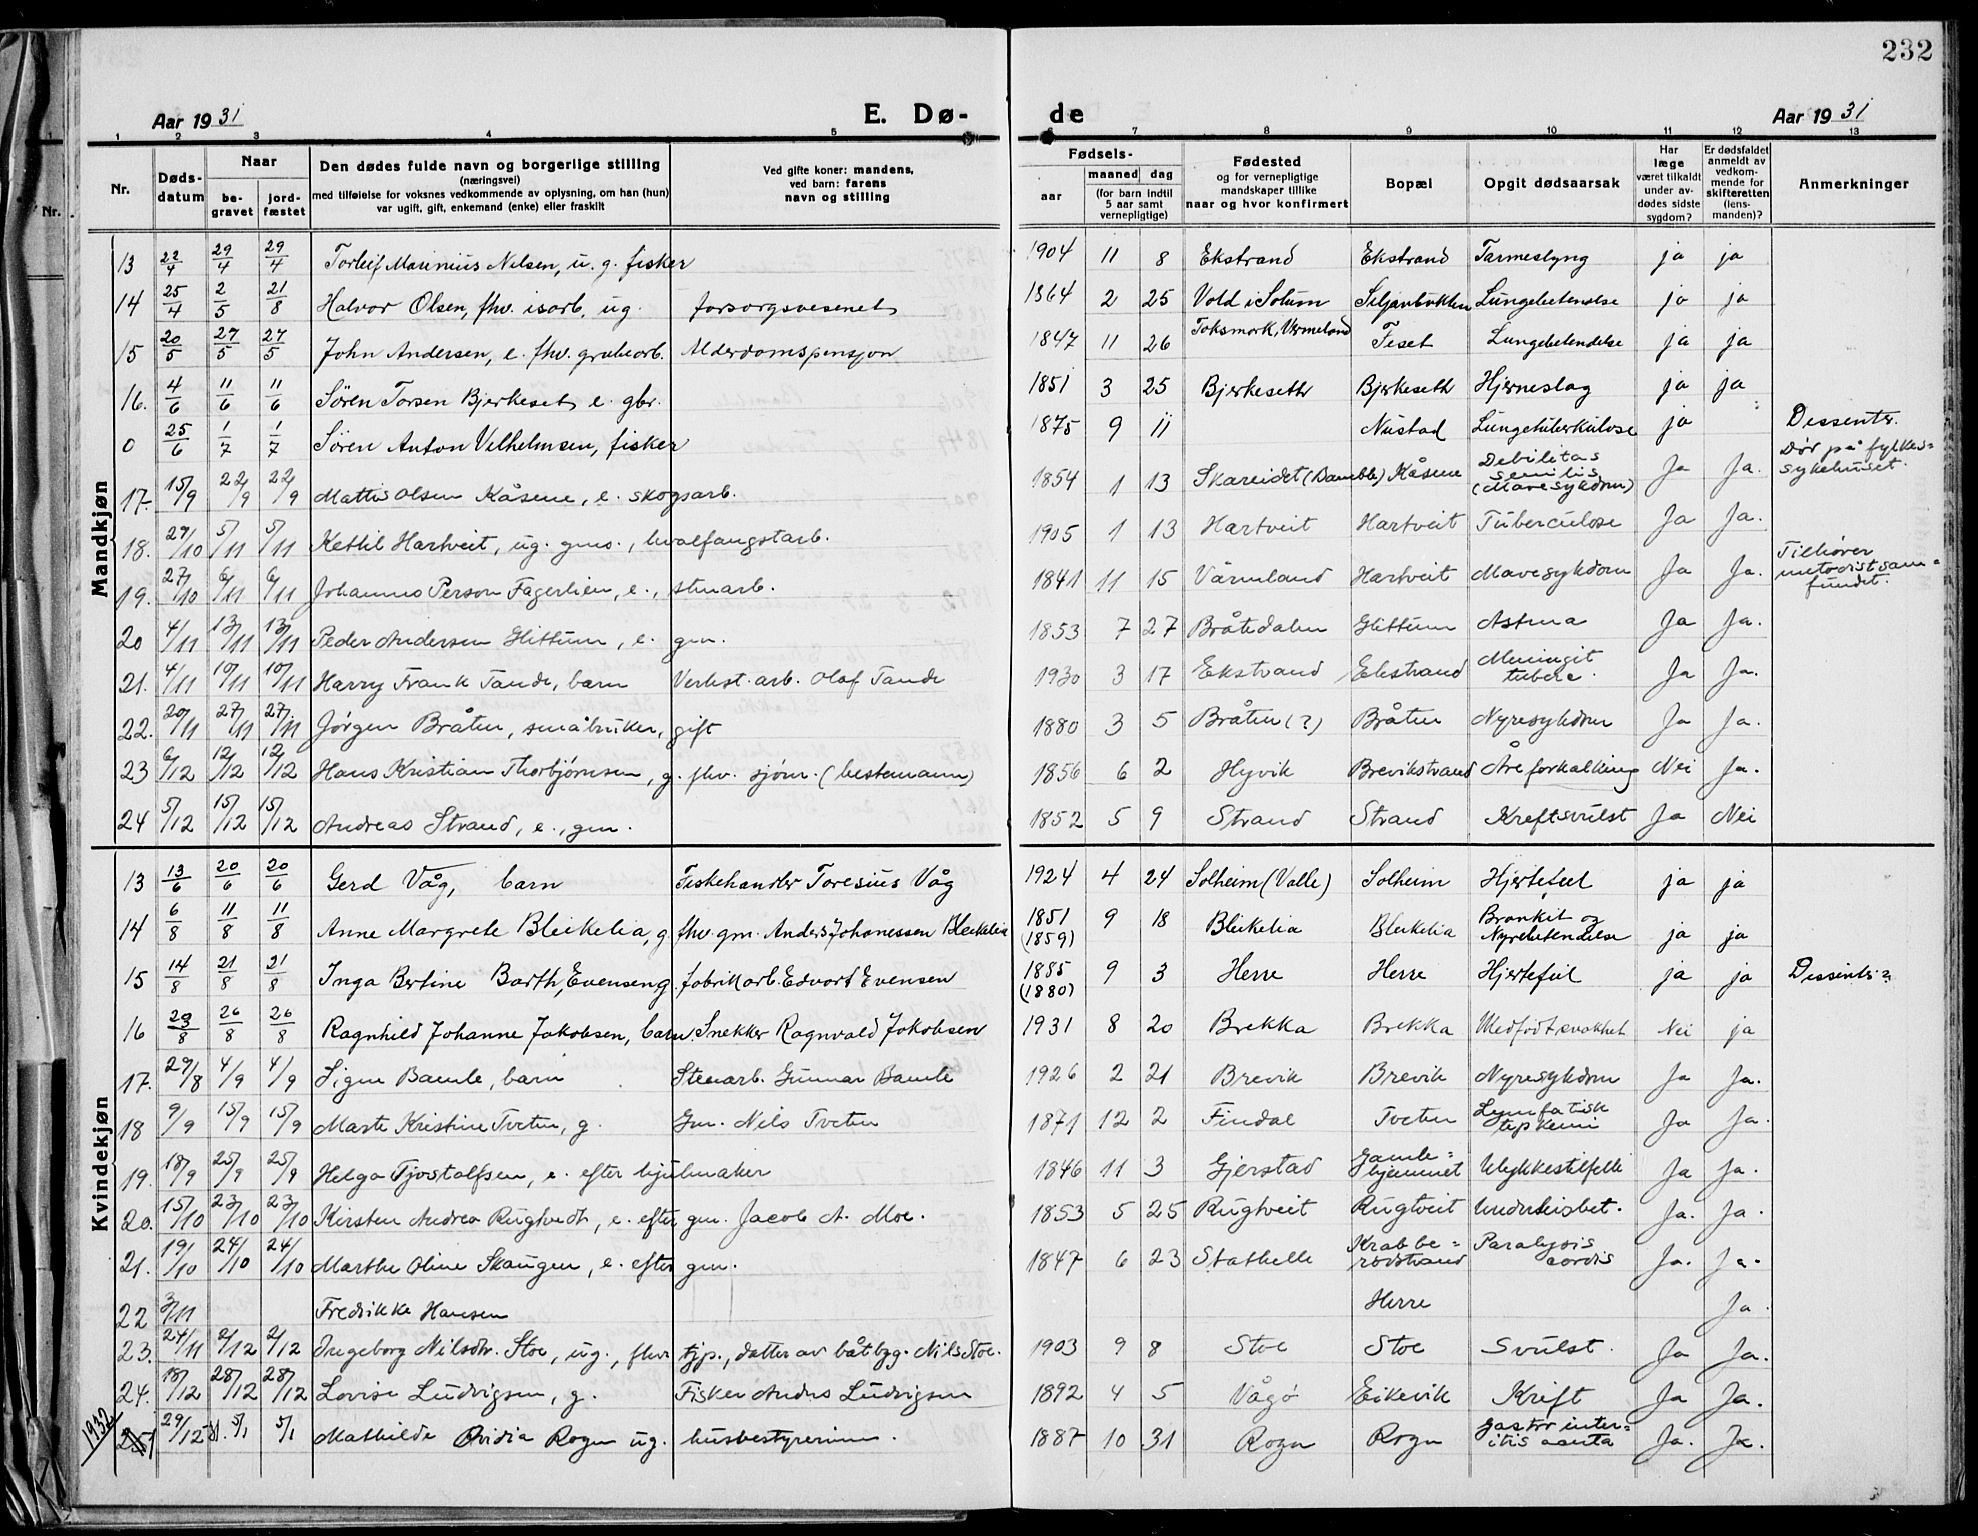 232
Aar 1931 E. Dø- de Aar 1931
1 2 3 4 5 6 7 8 9 10 11 12 13
Nr. Døds-datum Naar begravet jordfæstet Den dødes fulde navn og borgerlige stilling (næringsvei) med tilføielse for voksnes vedkommende av oplysning, om han (hun) var ugift, gift, enkemand (enke) eller fraskilt Ved gifte koner: mandens, ved barn: farens navn og stilling Fødsels- aar maaned dag (for barn indtil 5 aar samt vernepligtige) Fødested og for vernepligtige mandskaper tillike naar og hvor konfirmert Bopæl Opgit dødsaarsak Har læge været tilkaldt under avdødes sidste sygdom? Er dødsfaldet anmeldt av vedkommende for skifteretten (lensmanden)? Anmerkninger
Mandkjøn
13 22/4 29/4 29/4 Torleif Marinius Nilsen, u. g. fisker 1904 11 8 Ekstrand Ekstrand Tarmeslyng ja ja
14 25/4 2/5 21/8 Halvor Olsen, fhv. isarb. ug. forsorgsvesenet 1864 2 25 Vold i Solum Siljanbukten Lungebetendelse ja ja
15 20/5 27/5 27/5 John Andersen, e. fhv. grubearb. Alderdomspensjon 1847 11 26 Toksmark, Vermeland Feset Lungebetendelse ja ja
16. 4/6 11/6 11/6 Sören Torsen Bjerkeset, e. gbr. 1851 3 25 Bjerkeseth Bjerkeseth Hjerneslag ja ja
0 25/6 1/7 1/7 Sören Anton Vilhelmsen, fisker 1875 9 11 Nustad Lungetuberkulose ja Dissenter. Dör på fylkes=sykehuset.
17. 15/9 22/9 22/9 Mattis Olsen Kåsene, e. skogsarb. 1854 1 13 Skareidet (Bamble) Kåsene Debilitas senilis (Mavesykdom) Ja Ja.
18. 29/10 5/11 5/11 Kettil Hartveit, ug. gms., hvalfangstarb. 1905 1 13 Hartveit Hartveit Tuberculose Ja Ja.
19. 27/10 6/11 6/11 Johannes Person Fagerlien, e., stenarb. 1841 11 15 Värmland Hartveit Mavesykdom Ja Ja. Tilhører metodistsam=fundet.
20 4/11 13/11 13/11 Peder Andersen Glittum, e. gm. 1853 7 27 Bråtedalen Glittum Astma Ja Ja.
21. 4/11 10/11 10/11 Harry Frank Tande, barn Verkst. arb. Olaf Tande 1930 3 17 Ekstrand Ekstrand Meningit tuberc. Ja Ja.
22. 20/11 27/11 27/11 Jørgen Bråten, småbruker, gift 1880 3 5 Bråten (?) Bråten Nyresykdom Ja Ja.
23 6/12 12/12 12/12 Hans Kristian Thorbjørnsen, g. fhv. sjøm. (bestemann) 1856 6 2 Hyvik Brevikstrand Åreforkalkning Nei Ja.
24 5/12 15/12 15/12 Andreas Strand, e., gm. 1852 5 9 Strand Strand Kreftsvulst Ja Nei
Kvindekjøn
13 13/6 20/6 20/6 Gerd Våg, barn Fiskehandler Toresius Våg 1924 4 24 Solheim (Valle) Solheim Hjertefeil ja ja
14 6/8 11/8 11/8 Anne Margrete Bleikelia, g. fhv. gm. Anders Johanessen Bleikelia 1851 (1859) 9 18 Bleikelia Bleikelia Bronkit og Nyrebetendelse ja ja
15 14/8 21/8 21/8 Inga Bertine Barth, Evensen g. fabrikarb. Edvart Evensen 1885 (1880) 9 3 Herre Herre Hjertefeil ja ja Dissenter?
16 23/8 26/8 26/8 Ragnhild Johanne Jakobsen, barn. Snekker Ragnvald Jakobsen 1931 8 20 Brekka Brekka Medfødt svakhet Nei ja
17. 29/8 4/9 4/9 Signe Bamle, barn Stenarb. Gunnar Bamle 1926 2 21 Brevik Brevik Nyresykdom Ja Ja.
18 9/9 15/9 15/9 Marte Kristine Tveten, g. Gm. Nils Tveten 1871 12 2 Findal Tveten Lymfatisk Ja Ja.
19. 18/9 25/9 25/9 Helga Tjostolfsen, e. efter hjulmaker 1846 11 3 Gjerstad Gamle=hjemmet Ulykkestilfelle Ja Ja.
20. 15/10 23/10 23/10 Kirsten Andrea Rugtvedt, e. efter gm. Jacob A. Moe. 1853 5 25 Rugtveit Rugtveit Underlivsbet. Ja. Ja.
21. 19/10 24/10 24/10 Marthe Oline Skaugen, e. efter gm. 1847 6 23 Stathelle Krabbe=rødstrand Paralysis cordis Ja. Ja.
22 3/11 Fredrikke Hansen Herre Ja.
23. 24/11 2/12 2/12 Ingeborg Nilsdtr. Stoe, ug., fhv. tjp., datter av båtbyg. Nils Stoe. 1903 9 8 Stoe Stoe Svulst. Ja Ja.
24. 18/12 28/12 28/12 Lovise Ludvigsen, g. Fisker Anders Ludvigsen 1892 4 5 Vågø Eikevik Kreft Ja Ja.
1932 251 29/12 5/1 5/1 Mathilde Ovidia Rogn ug. husbestyrerinne. 1887 10 31 Rogn Rogn gastro inter=itis acuta Ja. Ja.